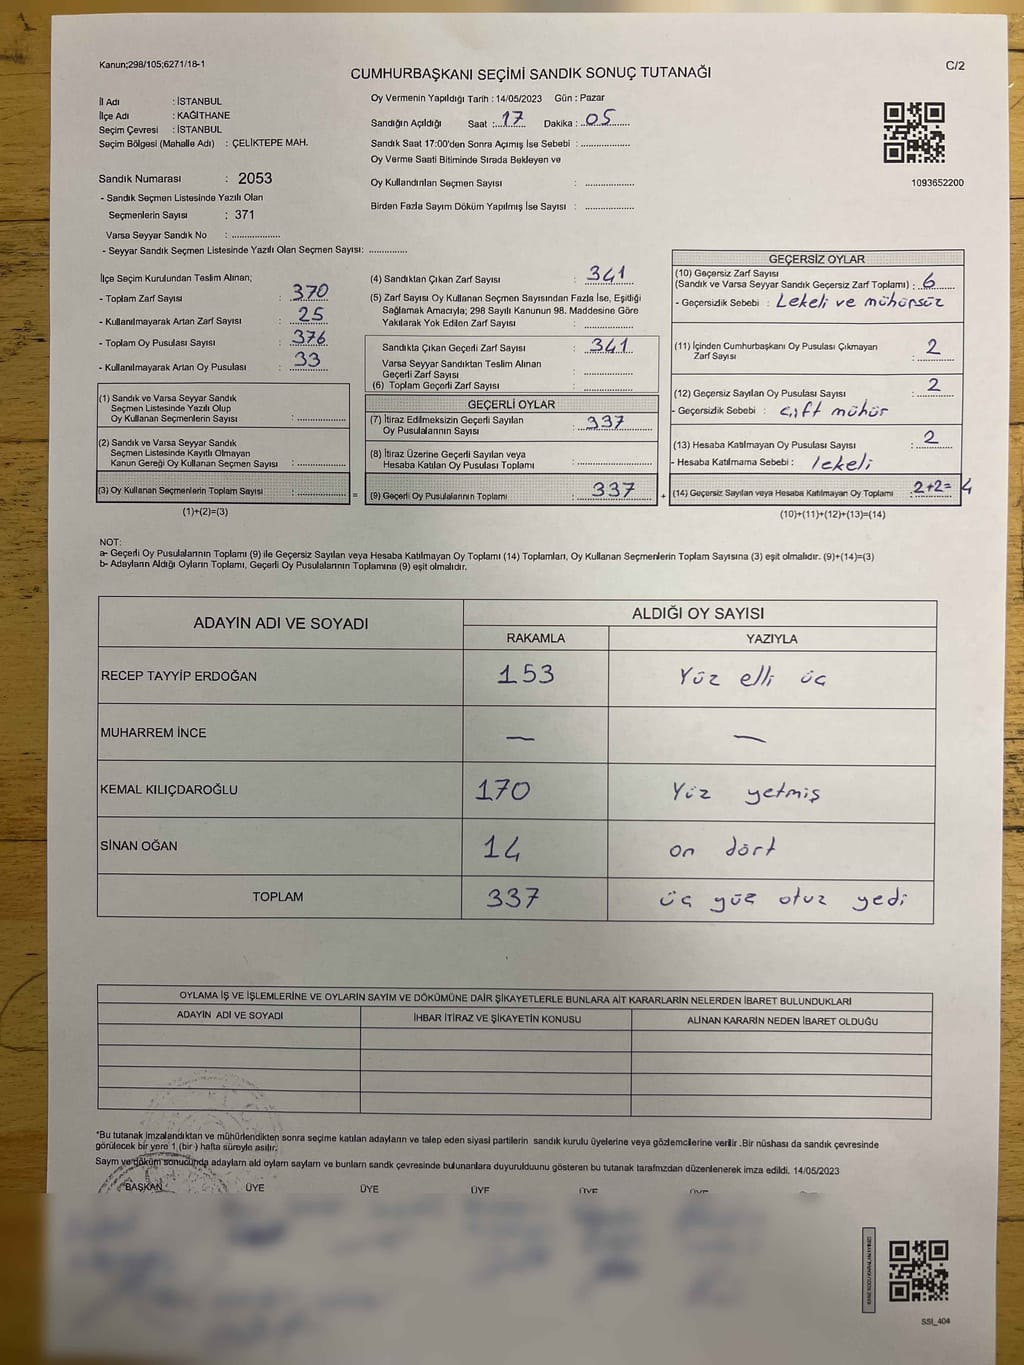 Kanun;298/105;6271/18-1
C/2
CUMHURBAŞKANI SEÇİMİ SANDIK SONUÇ TUTANAĞI
İl Adı : İSTANBUL
İlçe Adı : KAĞITHANE
Seçim Çevresi : İSTANBUL
Seçim Bölgesi (Mahalle Adı) : ÇELİKTEPE MAH.
Sandık Numarası : 2053
- Sandık Seçmen Listesinde Yazılı Olan
Seçmenlerin Sayısı : 371
Varsa Seyyar Sandık No : ................
- Seyyar Sandık Seçmen Listesinde Yazılı Olan Seçmen Sayısı: .............
Oy Vermenin Yapıldığı Tarih : 14/05/2023 Gün : Pazar
Sandığın Açıldığı Saat : 17 Dakika : 05
Sandık Saat 17:00'den Sonra Açımış İse Sebebi : ................
Oy Verme Saati Bitiminde Sırada Bekleyen ve
Oy Kullandırılan Seçmen Sayısı : ................
Birden Fazla Sayım Döküm Yapılmış İse Sayısı : ................
1093652200
İlçe Seçim Kurulundan Teslim Alınan;
- Toplam Zarf Sayısı : 370
- Kullanılmayarak Artan Zarf Sayısı : 25
- Toplam Oy Pusulası Sayısı : 376
- Kullanılmayarak Artan Oy Pusulası : 33
(1) Sandık ve Varsa Seyyar Sandık
Seçmen Listesinde Yazılı Olup
Oy Kullanan Seçmenlerin Sayısı : ................
(2) Sandık ve Varsa Seyyar Sandık
Seçmen Listesinde Kayıtlı Olmayan
Kanun Gereği Oy Kullanan Seçmen Sayısı : ................
(3) Oy Kullanan Seçmenlerin Toplam Sayısı : ................
(1)+(2)=(3)
(4) Sandıktan Çıkan Zarf Sayısı : 341
(5) Zarf Sayısı Oy Kullanan Seçmen Sayısından Fazla İse, Eşitliği
Sağlamak Amacıyla; 298 Sayılı Kanunun 98. Maddesine Göre
Yakılarak Yok Edilen Zarf Sayısı : ................
Sandıkta Çıkan Geçerli Zarf Sayısı : 341
Varsa Seyyar Sandıktan Teslim Alınan
Geçerli Zarf Sayısı : ................
(6) Toplam Geçerli Zarf Sayısı : ................
GEÇERLİ OYLAR
(7) İtiraz Edilmeksizin Geçerli Sayılan
Oy Pusulalarının Sayısı : 337
(8) İtiraz Üzerine Geçerli Sayılan veya
Hesaba Katılan Oy Pusulası Toplamı : ................
= (9) Geçerli Oy Pusulalarının Toplamı : 337 +
GEÇERSİZ OYLAR
(10) Geçersiz Zarf Sayısı
(Sandık ve Varsa Seyyar Sandık Geçersiz Zarf Toplamı) : 6
- Geçersizlik Sebebi : Lekeli ve mühürsüz
(11) İçinden Cumhurbaşkanı Oy Pusulası Çıkmayan
Zarf Sayısı : 2
(12) Geçersiz Sayılan Oy Pusulası Sayısı : 2
- Geçersizlik Sebebi : çift mühür
(13) Hesaba Katılmayan Oy Pusulası Sayısı : 2
- Hesaba Katılmama Sebebi : lekeli
(14) Geçersiz Sayılan veya Hesaba Katılmayan Oy Toplamı : 2+2= 4
(10)+(11)+(12)+(13)=(14)
NOT:
a- Geçerli Oy Pusulalarının Toplamı (9) ile Geçersiz Sayılan veya Hesaba Katılmayan Oy Toplamı (14) Toplamları, Oy Kullanan Seçmenlerin Toplam Sayısına (3) eşit olmalıdır. (9)+(14)=(3)
b- Adayların Aldığı Oyların Toplamı, Geçerli Oy Pusulalarının Toplamına (9) eşit olmalıdır.
ADAYIN ADI VE SOYADI
ALDIĞI OY SAYISI
RAKAMLA YAZIYLA
RECEP TAYYİP ERDOĞAN 153 Yüz elli üç
MUHARREM İNCE — —
KEMAL KILIÇDAROĞLU 170 Yüz yetmiş
SİNAN OĞAN 14 on dört
TOPLAM 337 üç yüz otuz yedi
OYLAMA İŞ VE İŞLEMLERİNE VE OYLARIN SAYIM VE DÖKÜMÜNE DAİR ŞİKAYETLERLE BUNLARA AİT KARARLARIN NELERDEN İBARET BULUNDUKLARI
ADAYIN ADI VE SOYADI İHBAR İTİRAZ VE ŞİKAYETİN KONUSU ALINAN KARARIN NEDEN İBARET OLDUĞU
*Bu tutanak imzalandıktan ve mühürlendikten sonra seçime katılan adayların ve talep eden siyasi partilerin sandık kurulu üyelerine veya gözlemcilerine verilir .Bir nüshası da sandık çevresinde
görülecek bir yere 1 (bir ) hafta süreyle asılır.
Saym ve döküm sonucunda adayların ald oyların sayları ve bunların sandk çevresinde bulunanlara duyurulduunu gösteren bu tutanak tarafmzdan düzenlenerek imza edildi. 14/05/2023
BAŞKAN ÜYE ÜYE ÜYE ÜYE ÜYE
SSI_404